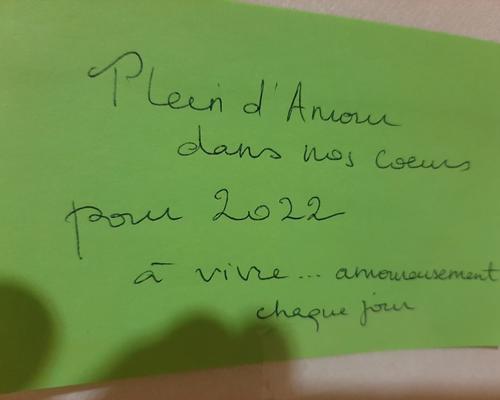 Plein d'Amour
dans nos coeurs
pour 2022
à vivre... amoureusement
chaque jour